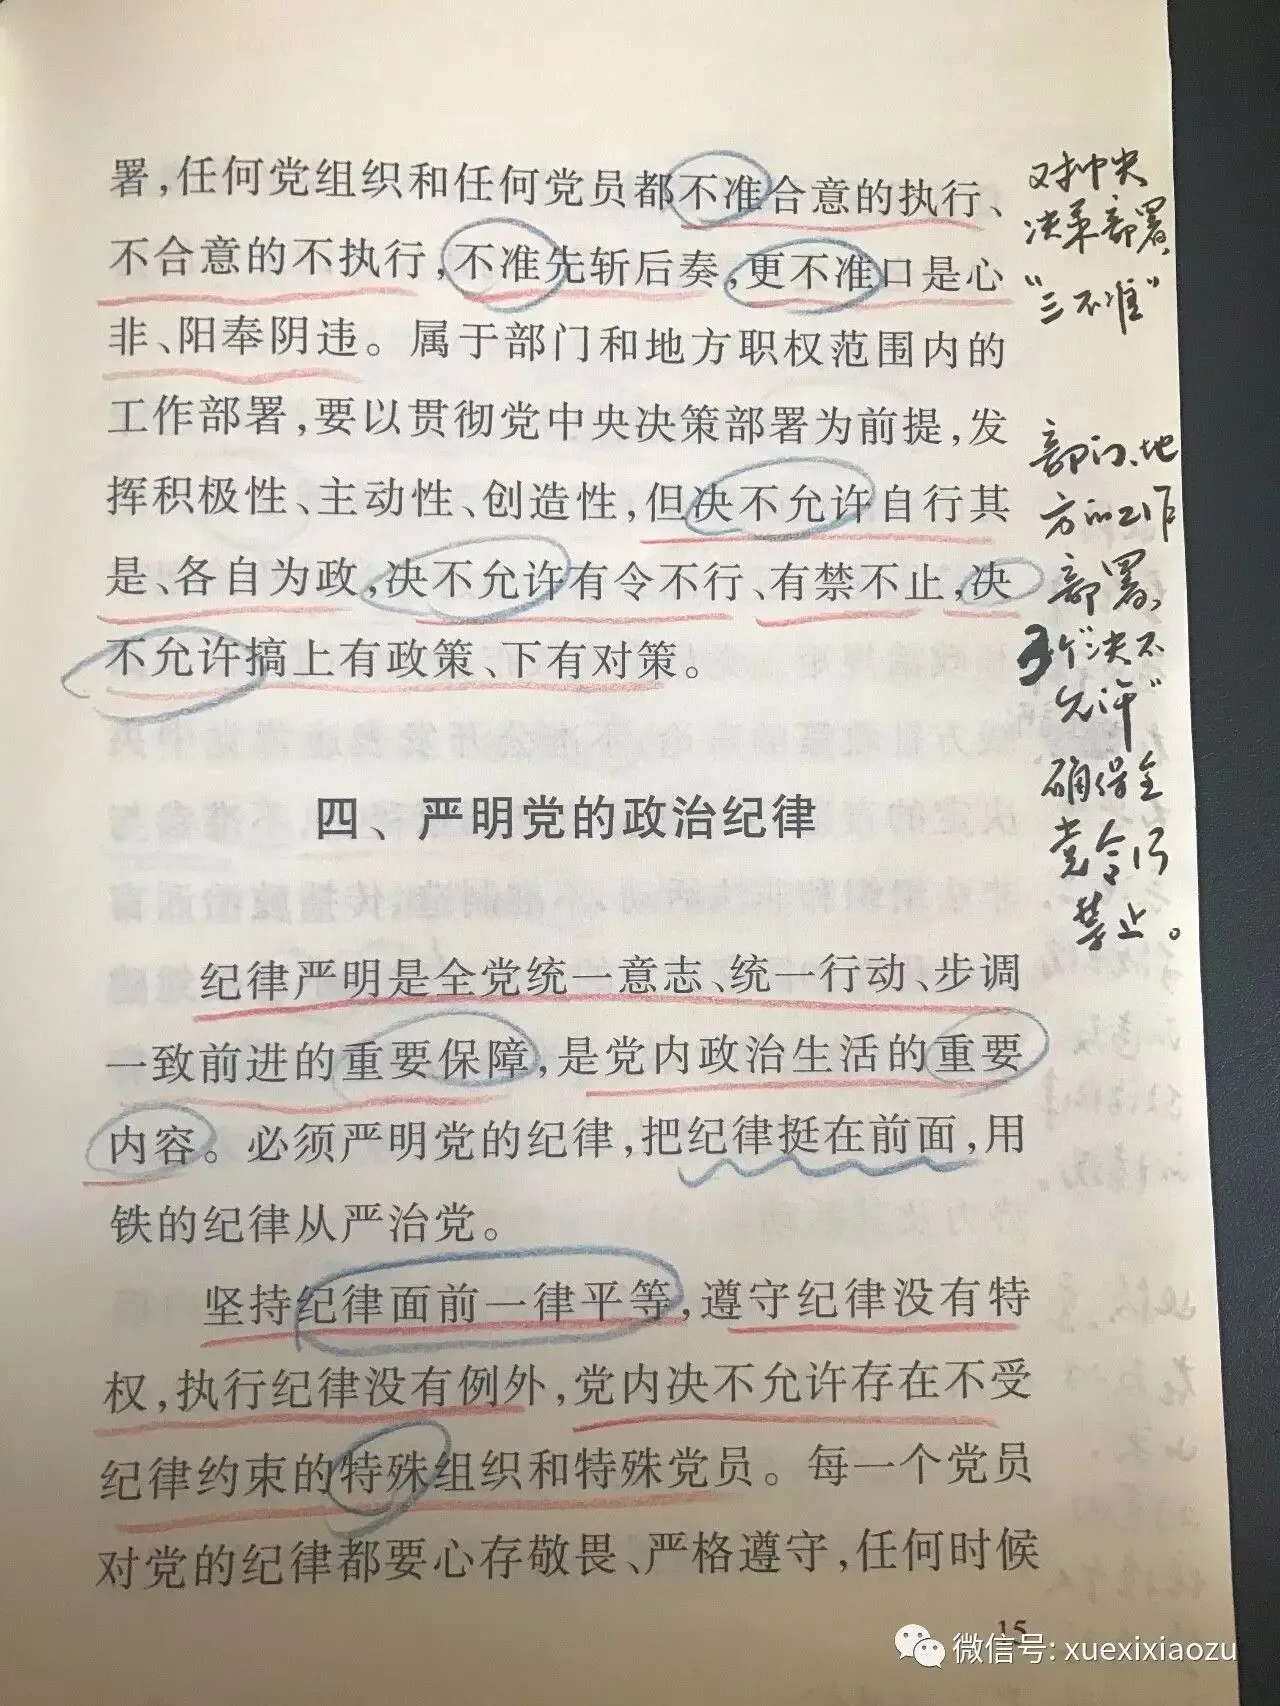 署，任何党组织和任何党员都不准合意的执行、
不合意的不执行，不准先斩后奏，更不准口是心
非、阳奉阴违。属于部门和地方职权范围内的
工作部署，要以贯彻党中央决策部署为前提，发
挥积极性、主动性、创造性，但决不允许自行其
是、各自为政，决不允许有令不行、有禁不止，决
不允许搞上有政策、下有对策。
四、严明党的政治纪律
纪律严明是全党统一意志、统一行动、步调
一致前进的重要保障，是党内政治生活的重要
内容。必须严明党的纪律，把纪律挺在前面，用
铁的纪律从严治党。
坚持纪律面前一律平等，遵守纪律没有特
权，执行纪律没有例外，党内决不允许存在不受
纪律约束的特殊组织和特殊党员。每一个党员
对党的纪律都要心存敬畏、严格遵守，任何时候
15
对中央
决策部署，
“三不准”
部门、地
方的工作
部署，
3个“决不
允许”
确保全
党令行
禁止。
微信号: xuexixiaozu